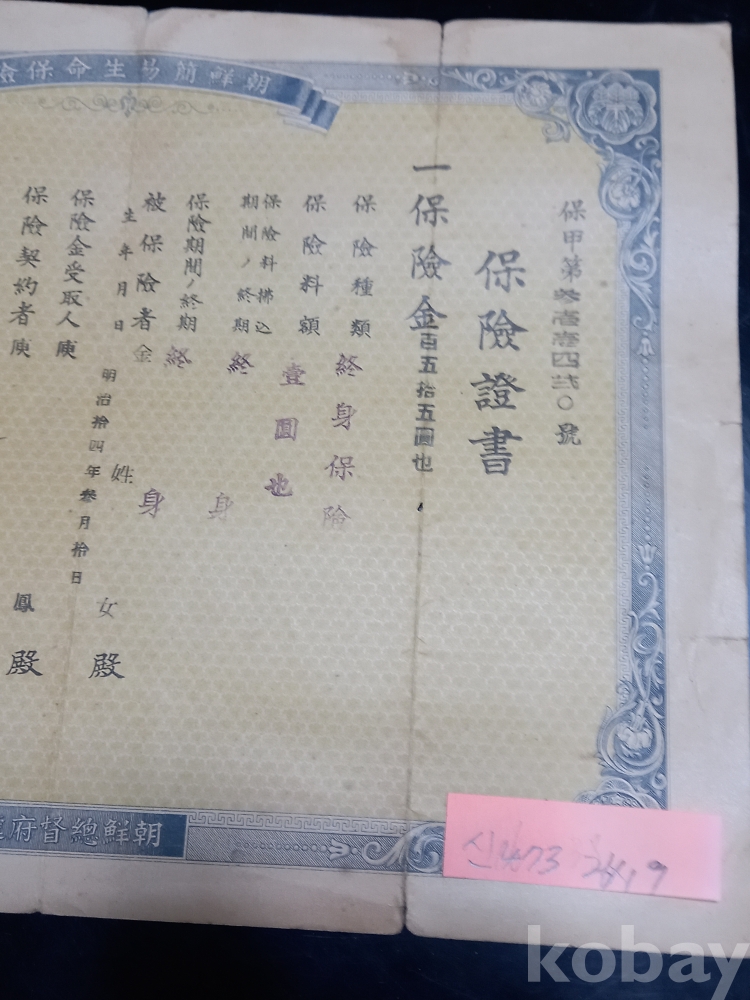 朝鮮簡易生命保險
保甲第参壱壱四弐〇號
保險證書
一保險金百五拾五圓也
保險種類 終身保險
保險料額 壹圓也
保險料拂込
期間ノ終期 終身
保險期間ノ終期 終身
被保險者 金姓女殿
生年月日 明治拾四年参月拾日
保險金受取人 庾
保險契約者 庾鳳殿
朝鮮總督府
신473
kobay